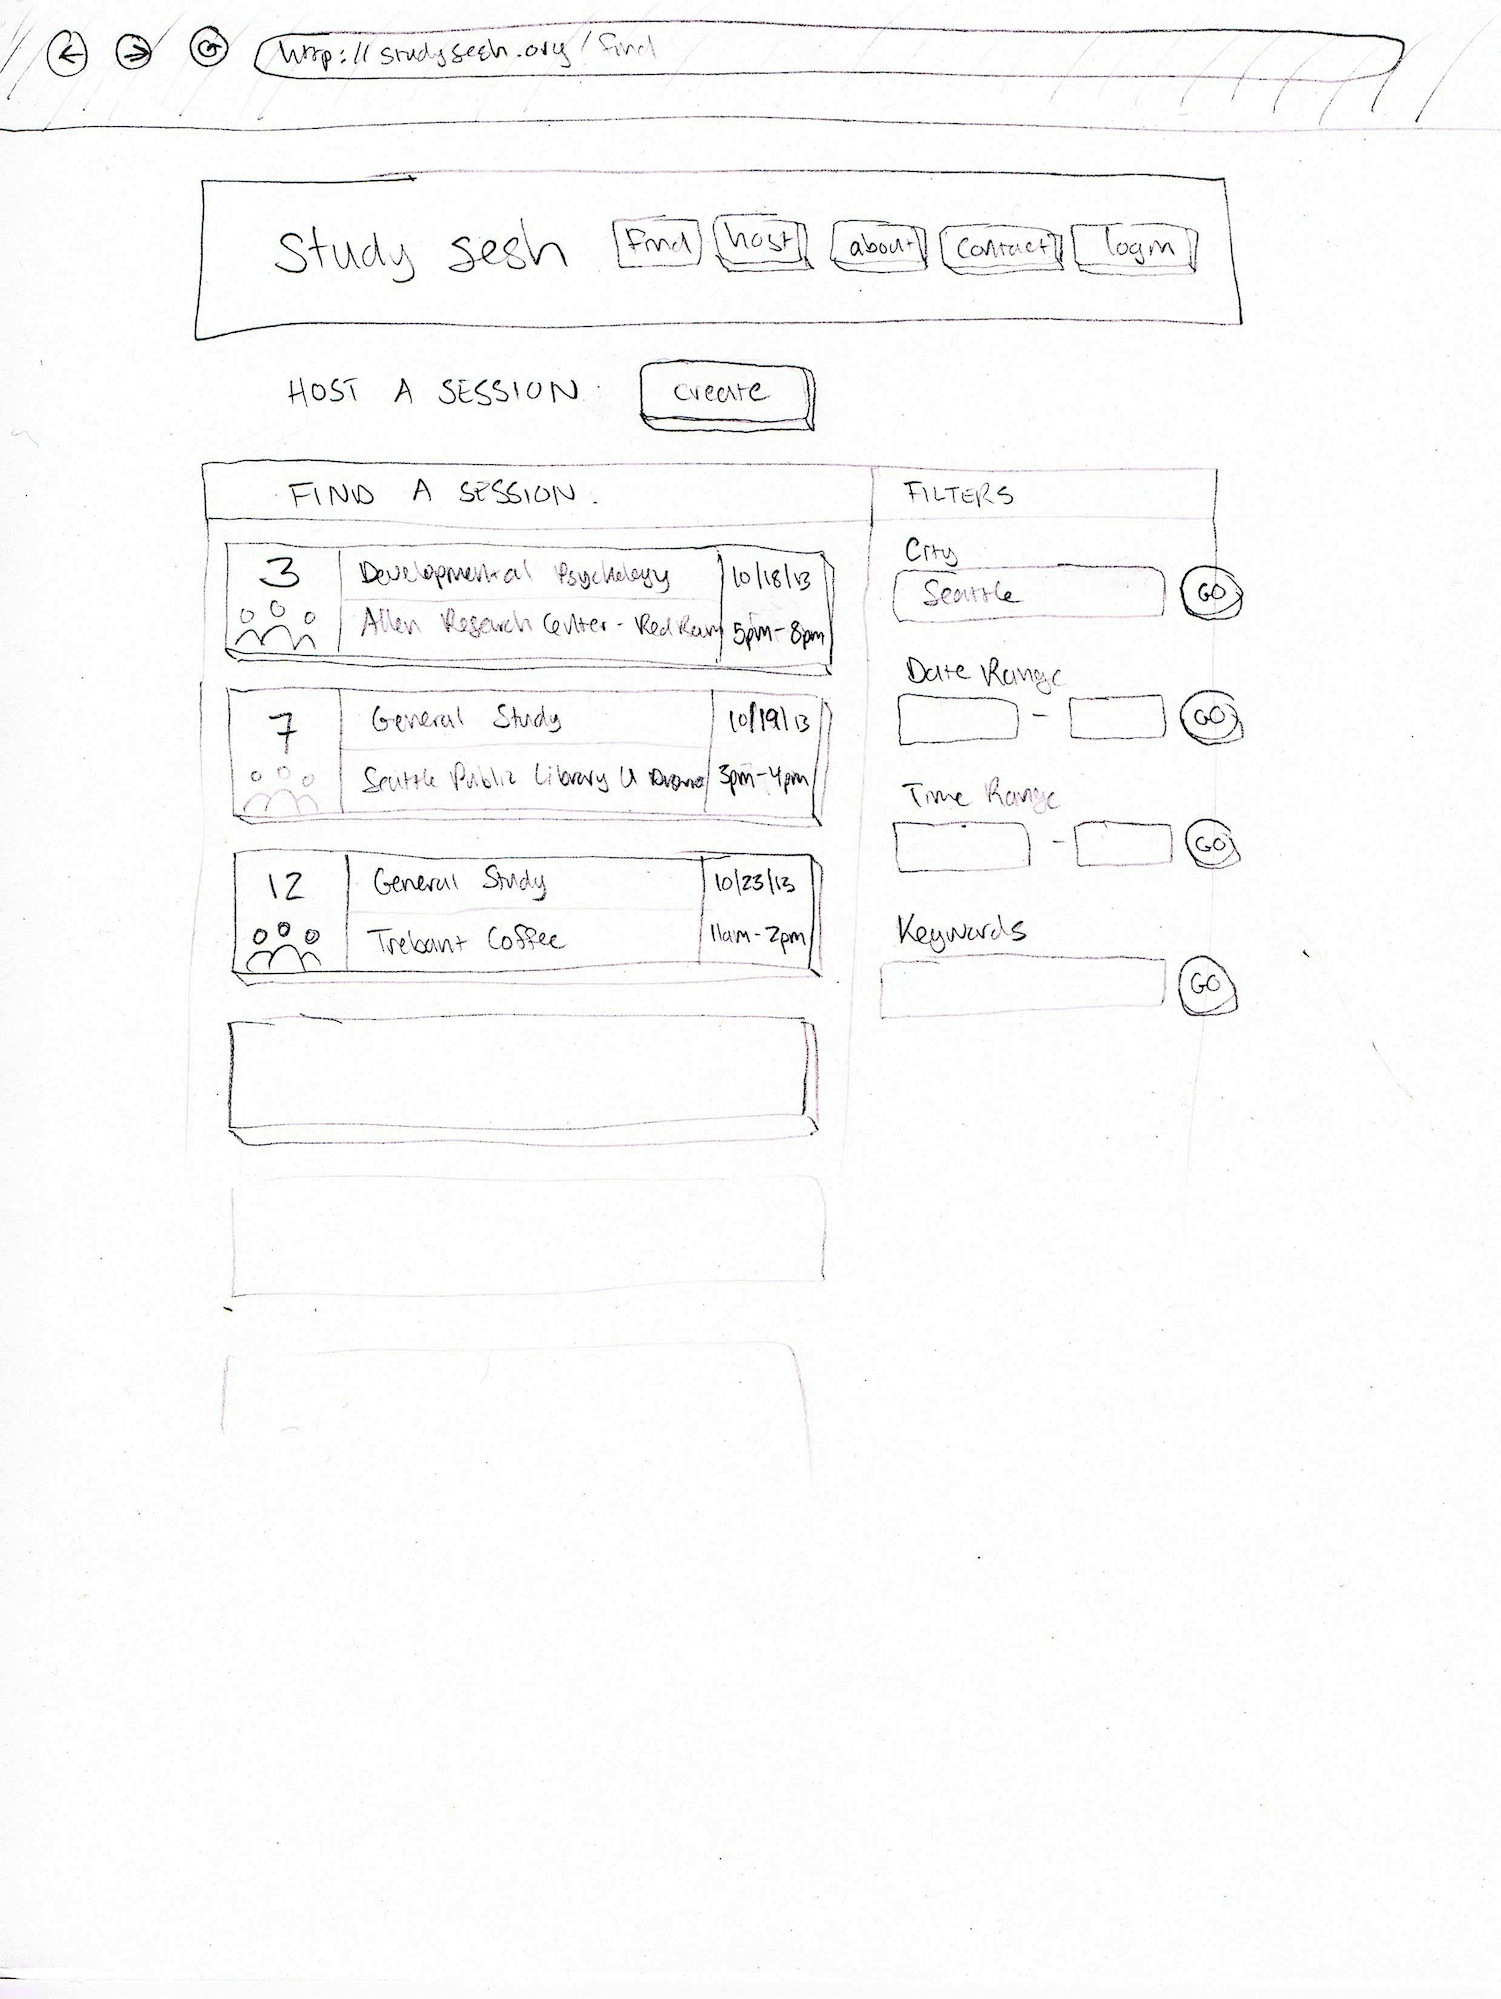 http://studysesh.org/find
Study sesh find host about contact login
HOST A SESSION create
FIND A SESSION.
3 Developmental Psychology 10/18/13
Allen Research Center - Red Ram 5pm-8pm
7 General Study 10/19/13
Seattle Public Library U 3pm-4pm
12 General Study 10/23/13
Trebant Coffee 11am-2pm
FILTERS
City
Seattle GO
Date Range
- GO
Time Range
- GO
Keywords
GO